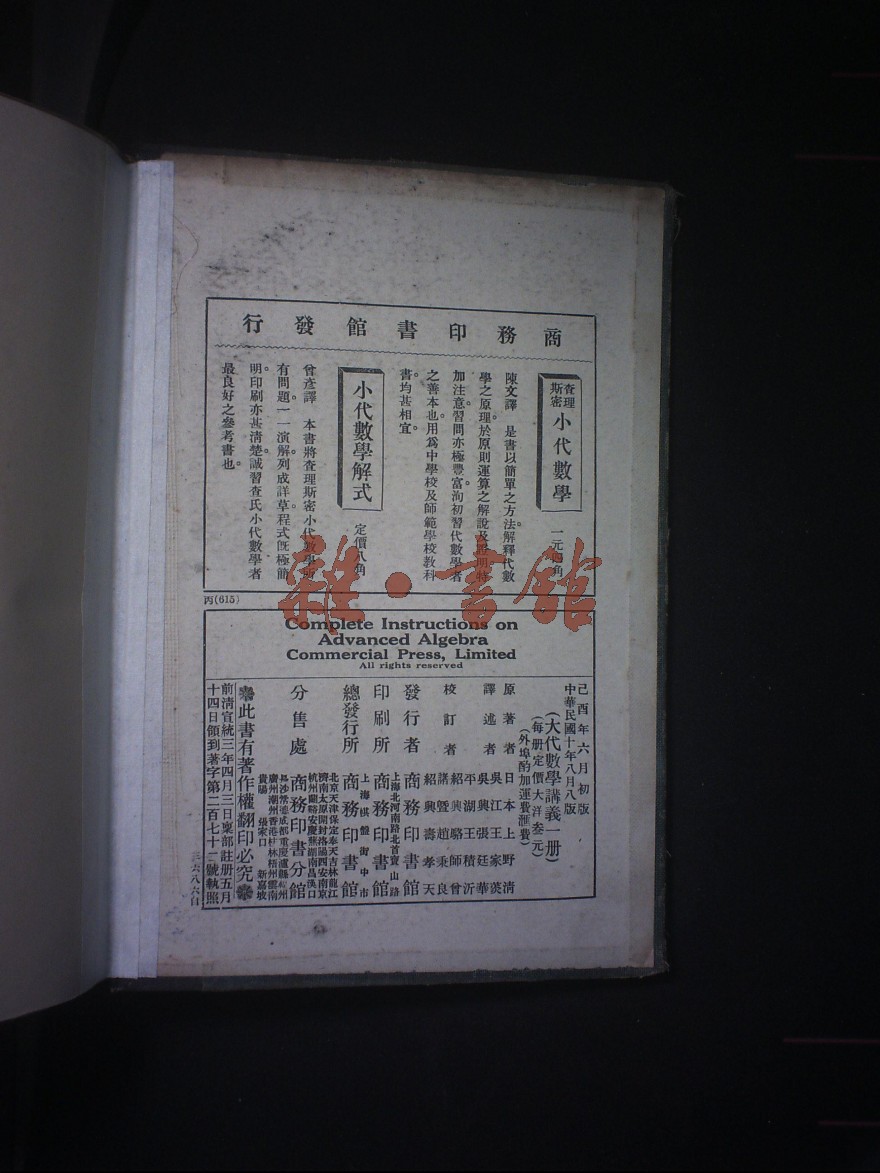 商務印書館發行
查理斯密 小代數學 一元四角
陳文譯 是書以簡單之方法解釋代數
學之原理於原則運算之解說及證明特
加注意習問亦極豐富洵初習代數學者
之善本也用爲中學校及師範學校教科
書均甚相宜。
小代數學解式 定價八角
曾彥譯 本書將查理斯密小代數學所
有問題。一一演解。列成詳草程式旣極簡
明印刷亦甚清楚。誠習查氏小代數學者
最良好之參考書也。
丙(615)
Complete Instructions on
Advanced Algebra
Commercial Press, Limited
All rights reserved
己酉年六月初版
中華民國十年八月八版
(大代數學講義一册)
(每册定價大洋叁元)
(外埠酌加運費滙費)
原著者 日本上野清
譯述者 吳江王家菼
吳興張廷華
平湖王積沂
校訂者 紹興駱師曾
諸暨趙秉良
紹興壽孝天
發行者 商務印書館
上海北河南路北首寶山路
印刷所 商務印書館
上海棋盤街中市
總發行所 商務印書館
分售處 商務印書分館
北京天津保定奉天吉林龍江
濟南太原開封洛陽西安南京
杭州蘭谿安慶蕪湖南昌漢口
廣州潮州香港桂林梧州雲南
貴陽 張家口 新嘉坡
此書有著作權翻印必究
前清宣統三年四月三日稟部註册五月
十四日領到著字第二百七十二號執照
雜·書館